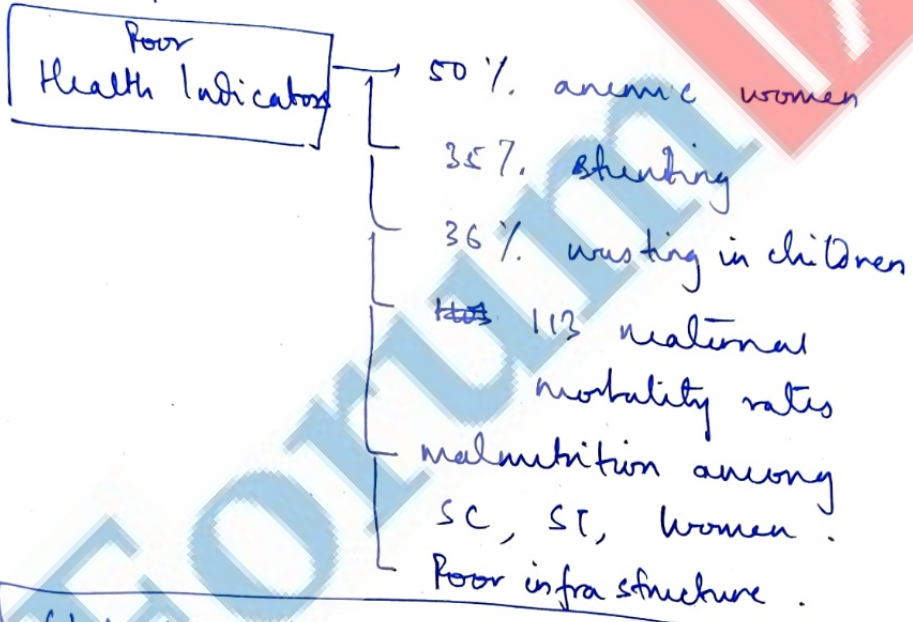 Poor
Health Indicators
50 % anemic women
35 %. stunting
36 % wasting in children
113 maternal
mortality rates
malnutrition among
SC, ST, women.
Poor infra structure.
Forum